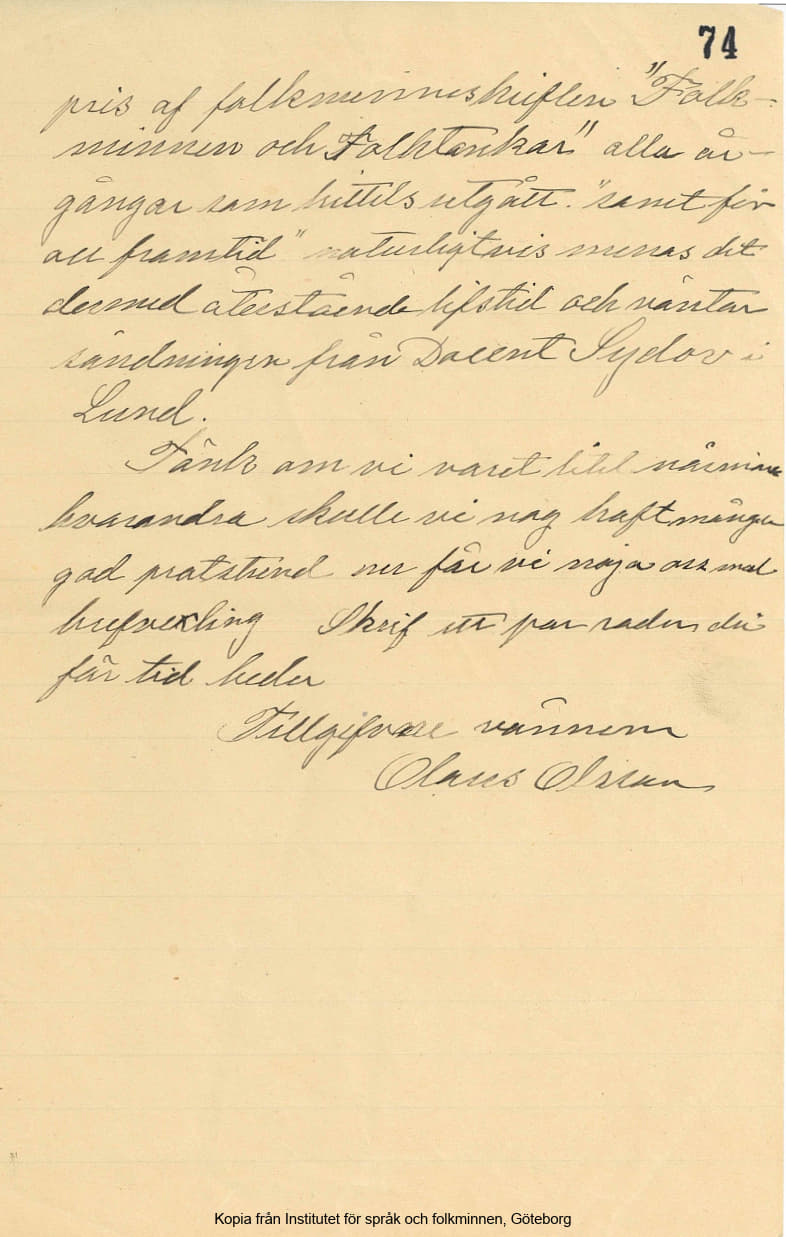 74
pris af folkminneskriften "Folk-
minnen och Folktankar" alla år-
gångar som hittils utgått. "samt för
all framtid" naturligtvis menas det
dermed återstående lifstid och väntar
sändningen från Docent Sydov i
Lund.
Tänk om vi varet litet närmare
hvarandra skulle vi nog haft mången
god pratstund nu får vi nöja oss med
brefvexling Skrif ett par rader du
får tid beder
Tillgifvne vännen
Olaus Olsson
Kopia från Institutet för språk och folkminnen, Göteborg